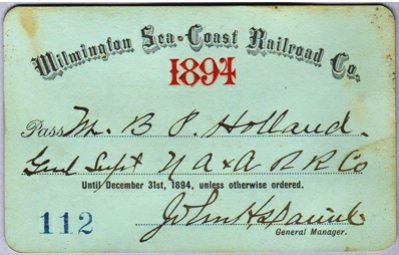 Wilmington Sea-Coast Railroad Co.
1894
Pass Mr. B P. Holland.
Genl Supt N A & A R R Co
Until December 31st, 1894, unless otherwise ordered.
112
General Manager.